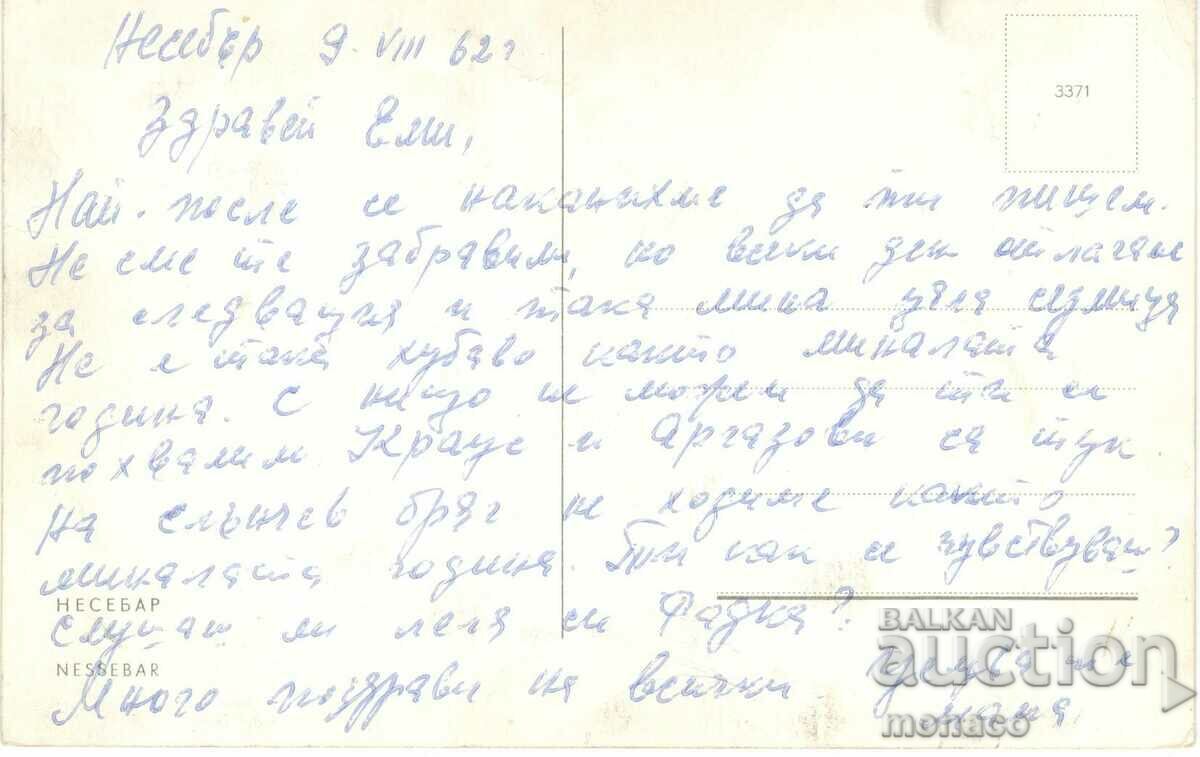 Несебър 9. VIII 62 г
Здравей Еми,
Най-после се наканихме да ти пишем.
Не сме те забравили, но всеки ден отлагаме
за следващия и така мина цяла седмица
Не е така хубаво както миналата
година. С нищо не можем да ти се
похвалим Краус и Аргазови са тук
На слънчев бряг не ходиме както
миналата година. Ти как се чувствуваш?
Слушаш ли леля си Радка?
Много поздрави на всички
мама
3371
НЕСЕБАР
NESSEBAR
BALKAN
auction
monaco